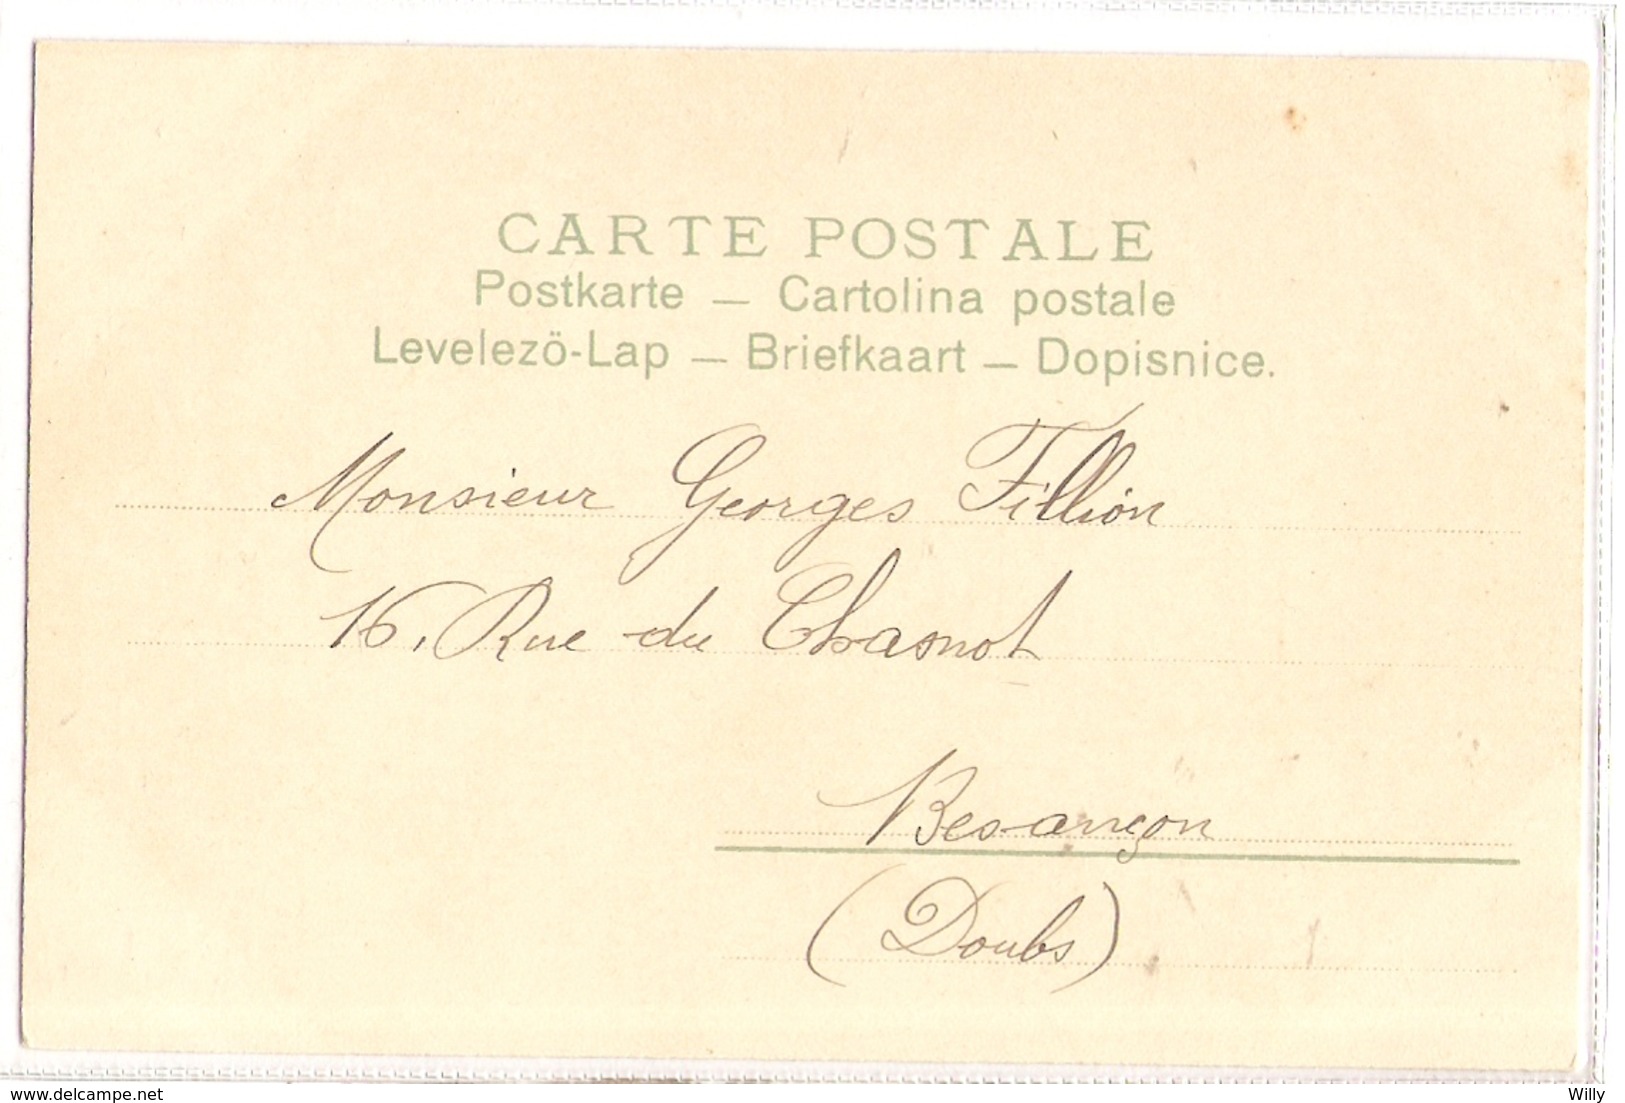 CARTE POSTALE
Postkarte — Cartolina postale
Levelezö-Lap — Briefkaart — Dopisnice.
Monsieur Georges Fillion
16, Rue du Chasnot
Besançon
(Doubs)
delcampe.net
Willy